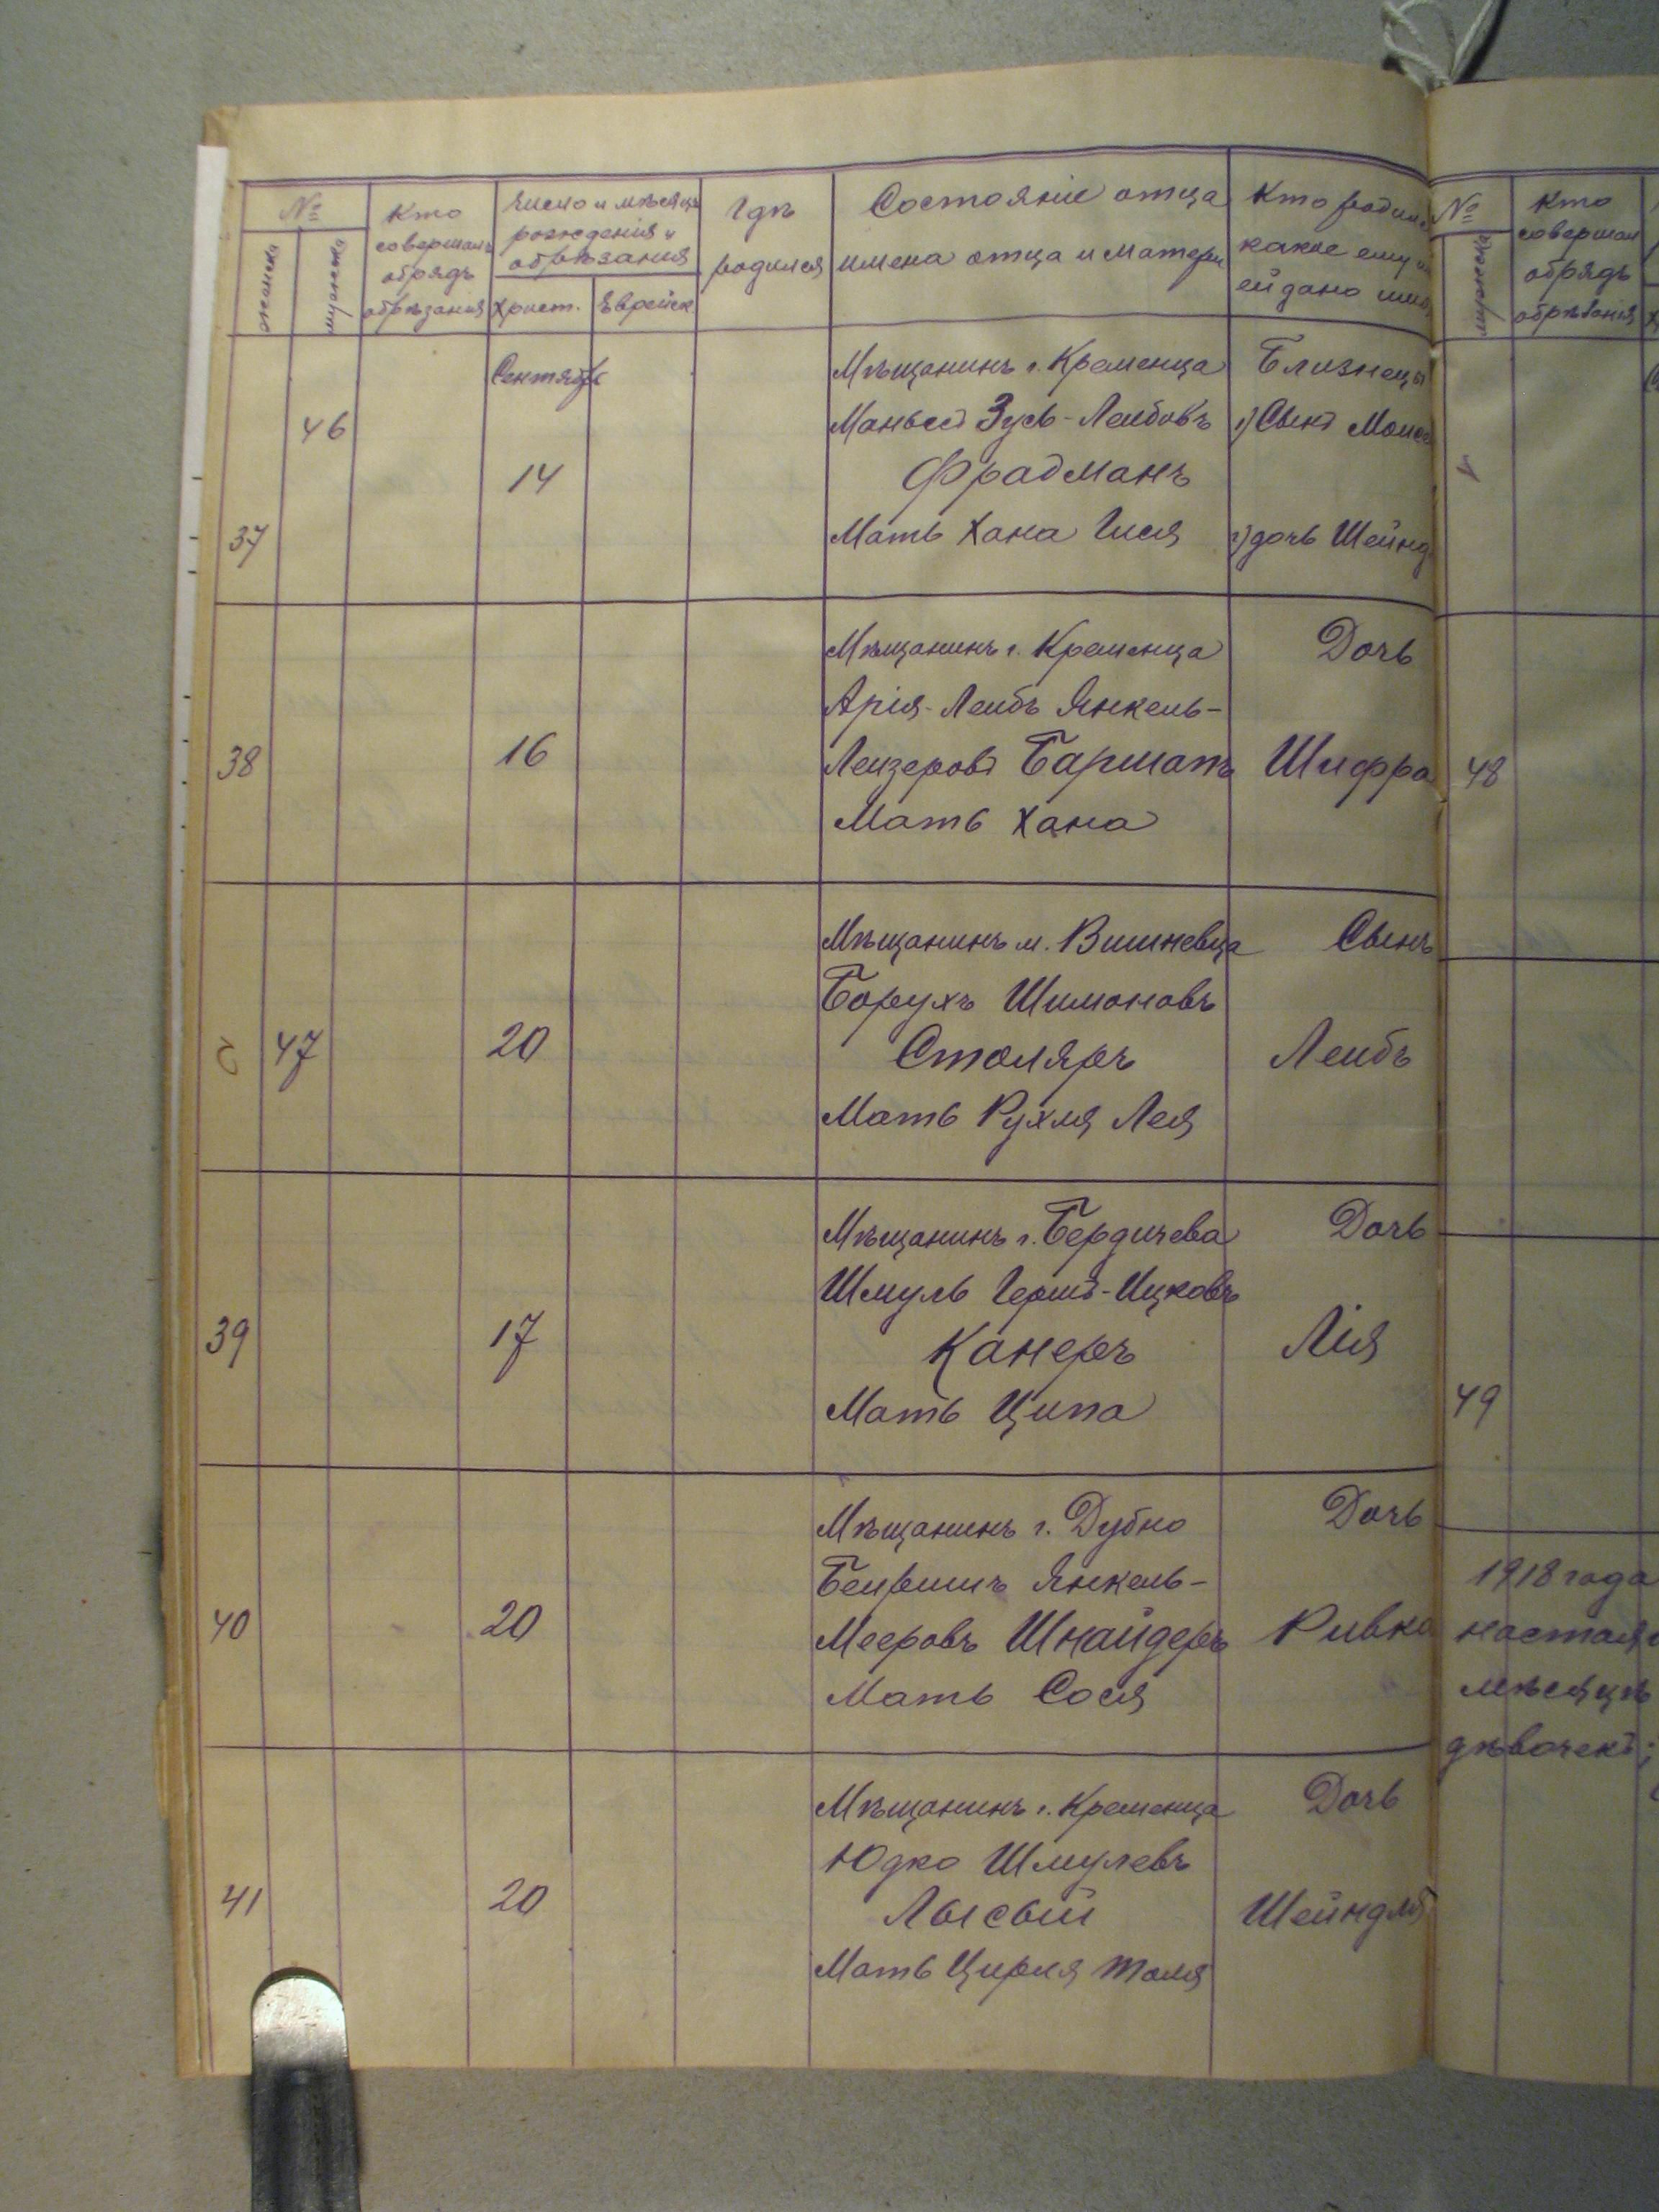 №
женска
мужеска
Кто
совершалъ
обрядъ
обрѣзанія
Число и мѣсяцъ
рожденія и
обрѣзанія
Христ.
Еврейск
Гдѣ
родился
Состояніе отца
имена отца и матери
Кто родил
какое ему и
ей дано имя
Сентябрь
46
14
37
Мѣщанинъ г. Кременца
Маньесъ Зусь-Лейбовъ
Фрадманъ
Мать Хана Гися
Близнецы
1) Сынъ Моисе
2) дочь Шейнд
38
16
Мѣщанинъ г. Кременца
Арія-Лейбъ Янкель-
Лейзеровъ Бармакъ
Мать Хана
Дочь
Шифра
47
20
Мѣщанинъ м. Вишневца
Борухъ Шимоновъ
Столяръ
Мать Рухля Лея
Сынъ
Лейбъ
39
17
Мѣщанинъ г. Бердичева
Шмуль Гершъ-Ицковъ
Канеръ
Мать Ципа
Дочь
Лія
40
20
Мѣщанинъ г. Дубно
Бейришъ Янкель-
Мееровъ Шнайдеръ
Мать Сося
Дочь
Ривка
41
20
Мѣщанинъ г. Кременца
Юдко Шмулевъ
Лысый
Мать Цирля Толя
Дочь
Шейндля
№
мужеска
Кто
совершал
обрядъ
обрѣзанія
48
49
1918 года
настоя
мѣсяцѣ
дѣвочекъ;